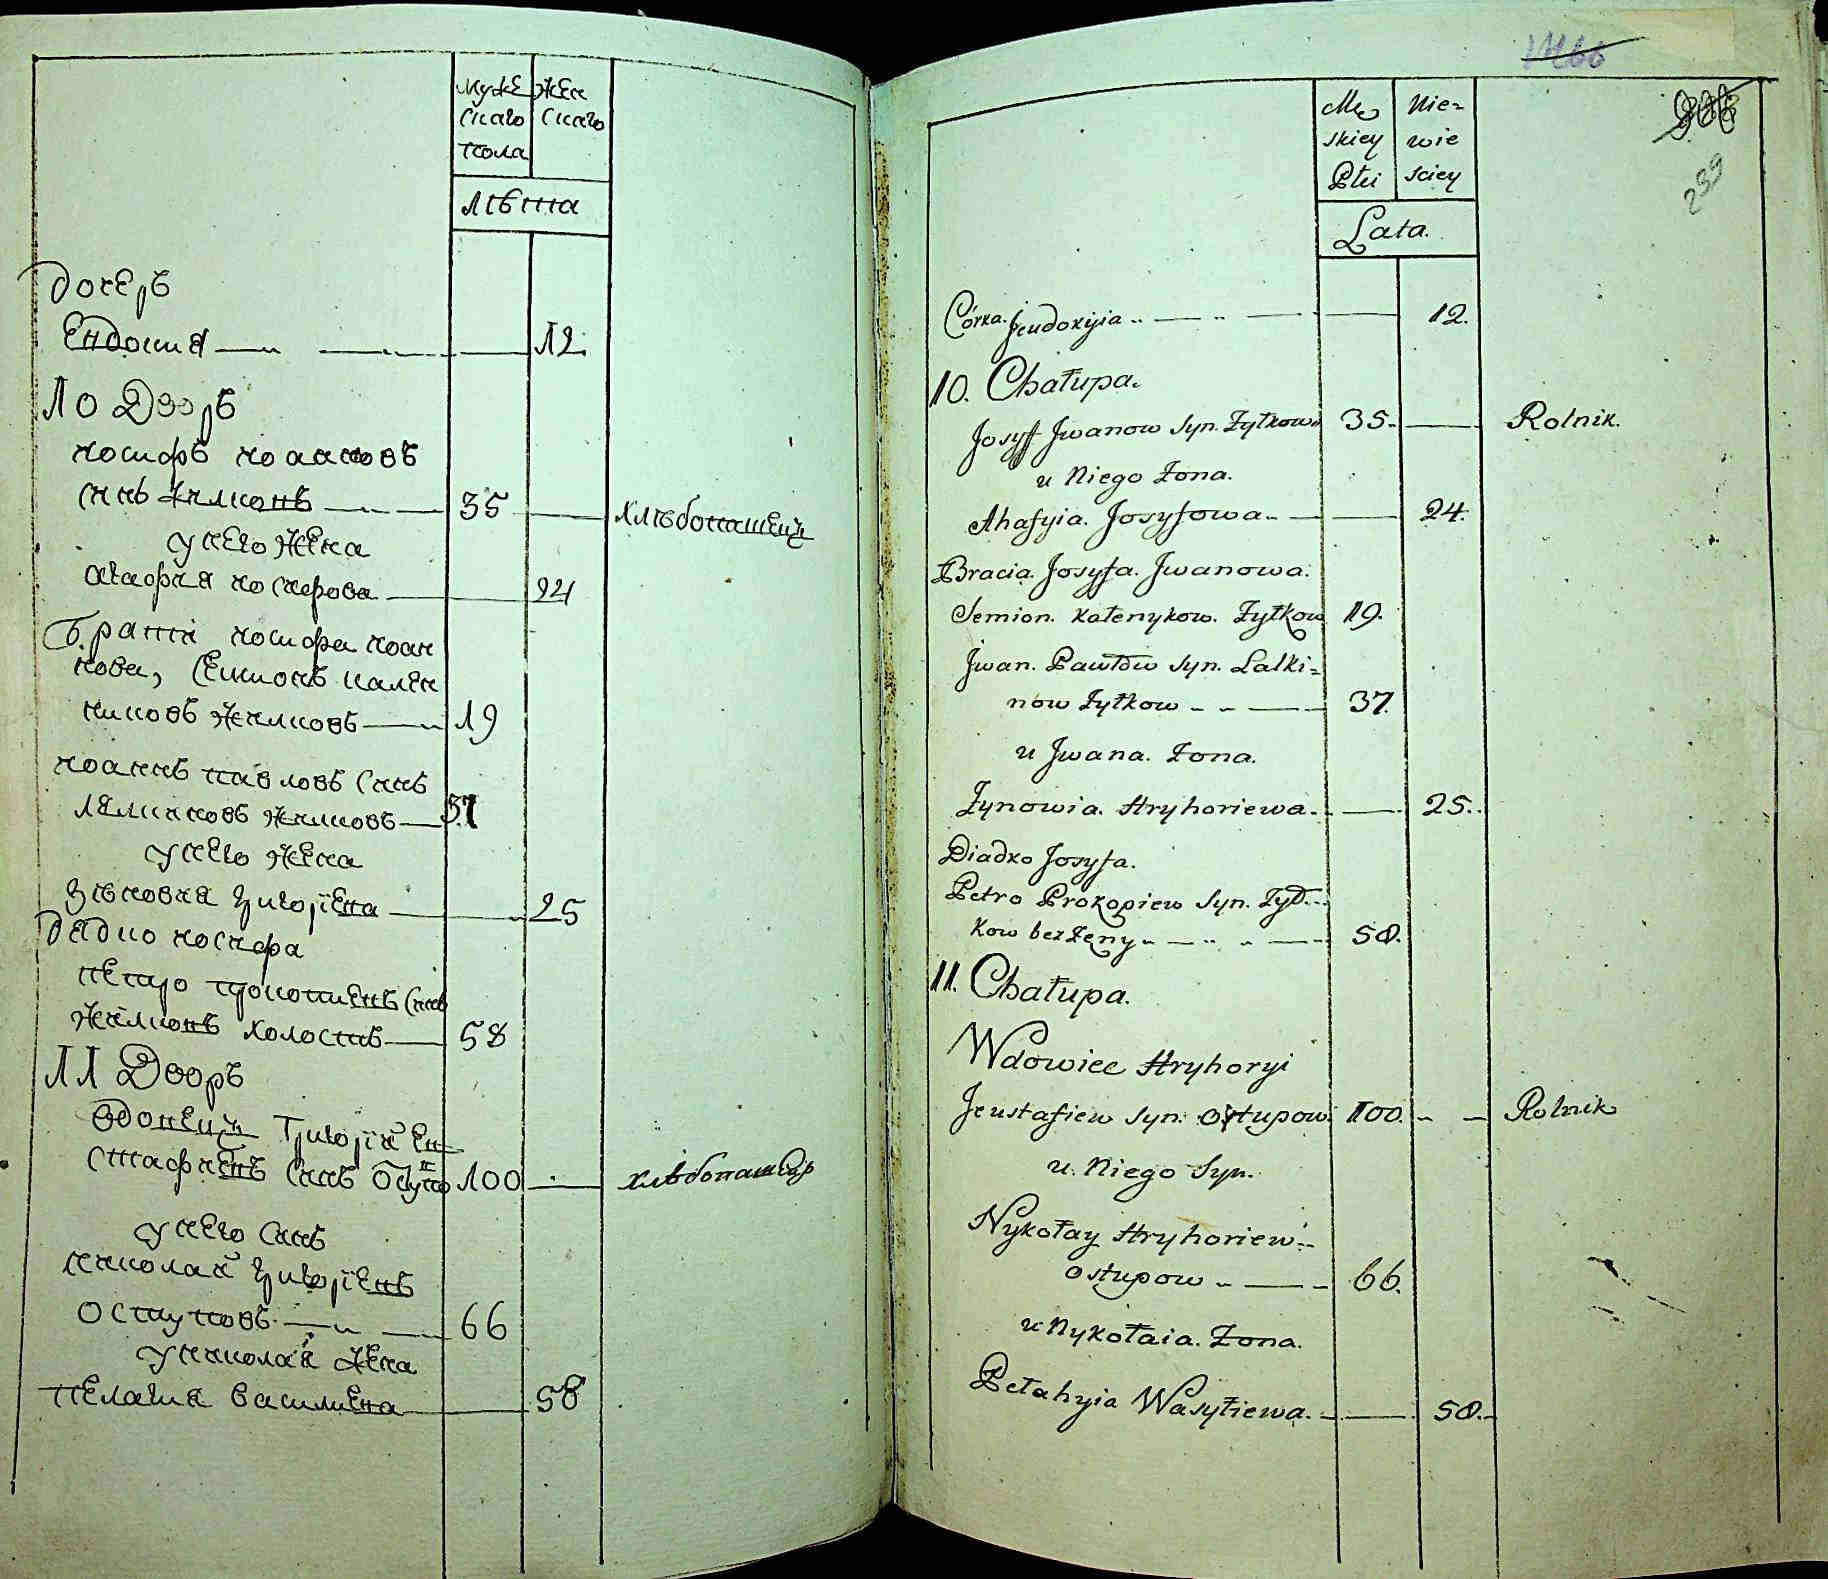 муже
скаго
пола
жен
скаго
лѣта
дочерь
Евдокия 12.
10 Дворъ
иосифъ иоанновъ
синъ жилковъ 35 хлѣбопашецъ
у него жена
агафия иосифова 24
Брати иосифа иоан
нова, Семионъ кален
никовъ жилковъ 19
иоаннъ павловъ синъ
лялкиновъ жилковъ 37
у него жена
зѣновия григориева 25
дядко иосифа
петро прокопиевъ синъ
жилковъ холостъ 58
11 Дворъ
вдовецъ григорій ев
стафиевъ синъ Оступо 100 хлѣбопашецъ
у него синъ
николай григориевъ
оступовъ 66
у николая жена
пелагия василиева 58
1466
906
299
Mę
skiey
Płci
Nie=
wie
sciey
Lata.
Córka. Jeudokyia 12.
10. Chałupa.
Josyff Jwanow Syn. Zyłkow 35. Rolnik.
u Niego Zona.
Ahafyia. Josyfowa 24.
Bracia. Josyfa. Jwanowa.
Semion. Kałenykow. Zyłkow 19.
Jwan. Pawłow Syn. Lalki=
now Zyłkow 37.
u Jwana. Zona.
Zynowia. Hryhoriewa. 25.
Diadko Josyfa.
Petro Prokopiew Syn. Zył
kow bez Zeny 58.
11. Chałupa.
Wdowiec Hryhoryi
Jeustafiew Syn. Ostupow 100. Rolnik
u Niego Syn.
Nykołay Hryhoriew
Ostupow 66.
u Nykołaia. Zona.
Pełahyia Wasyliewa. 58.